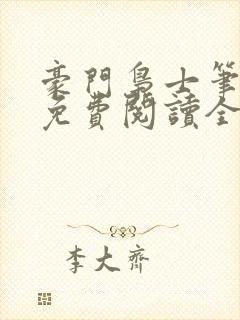 豪門梟士筆
免費閱讀全
李大齊